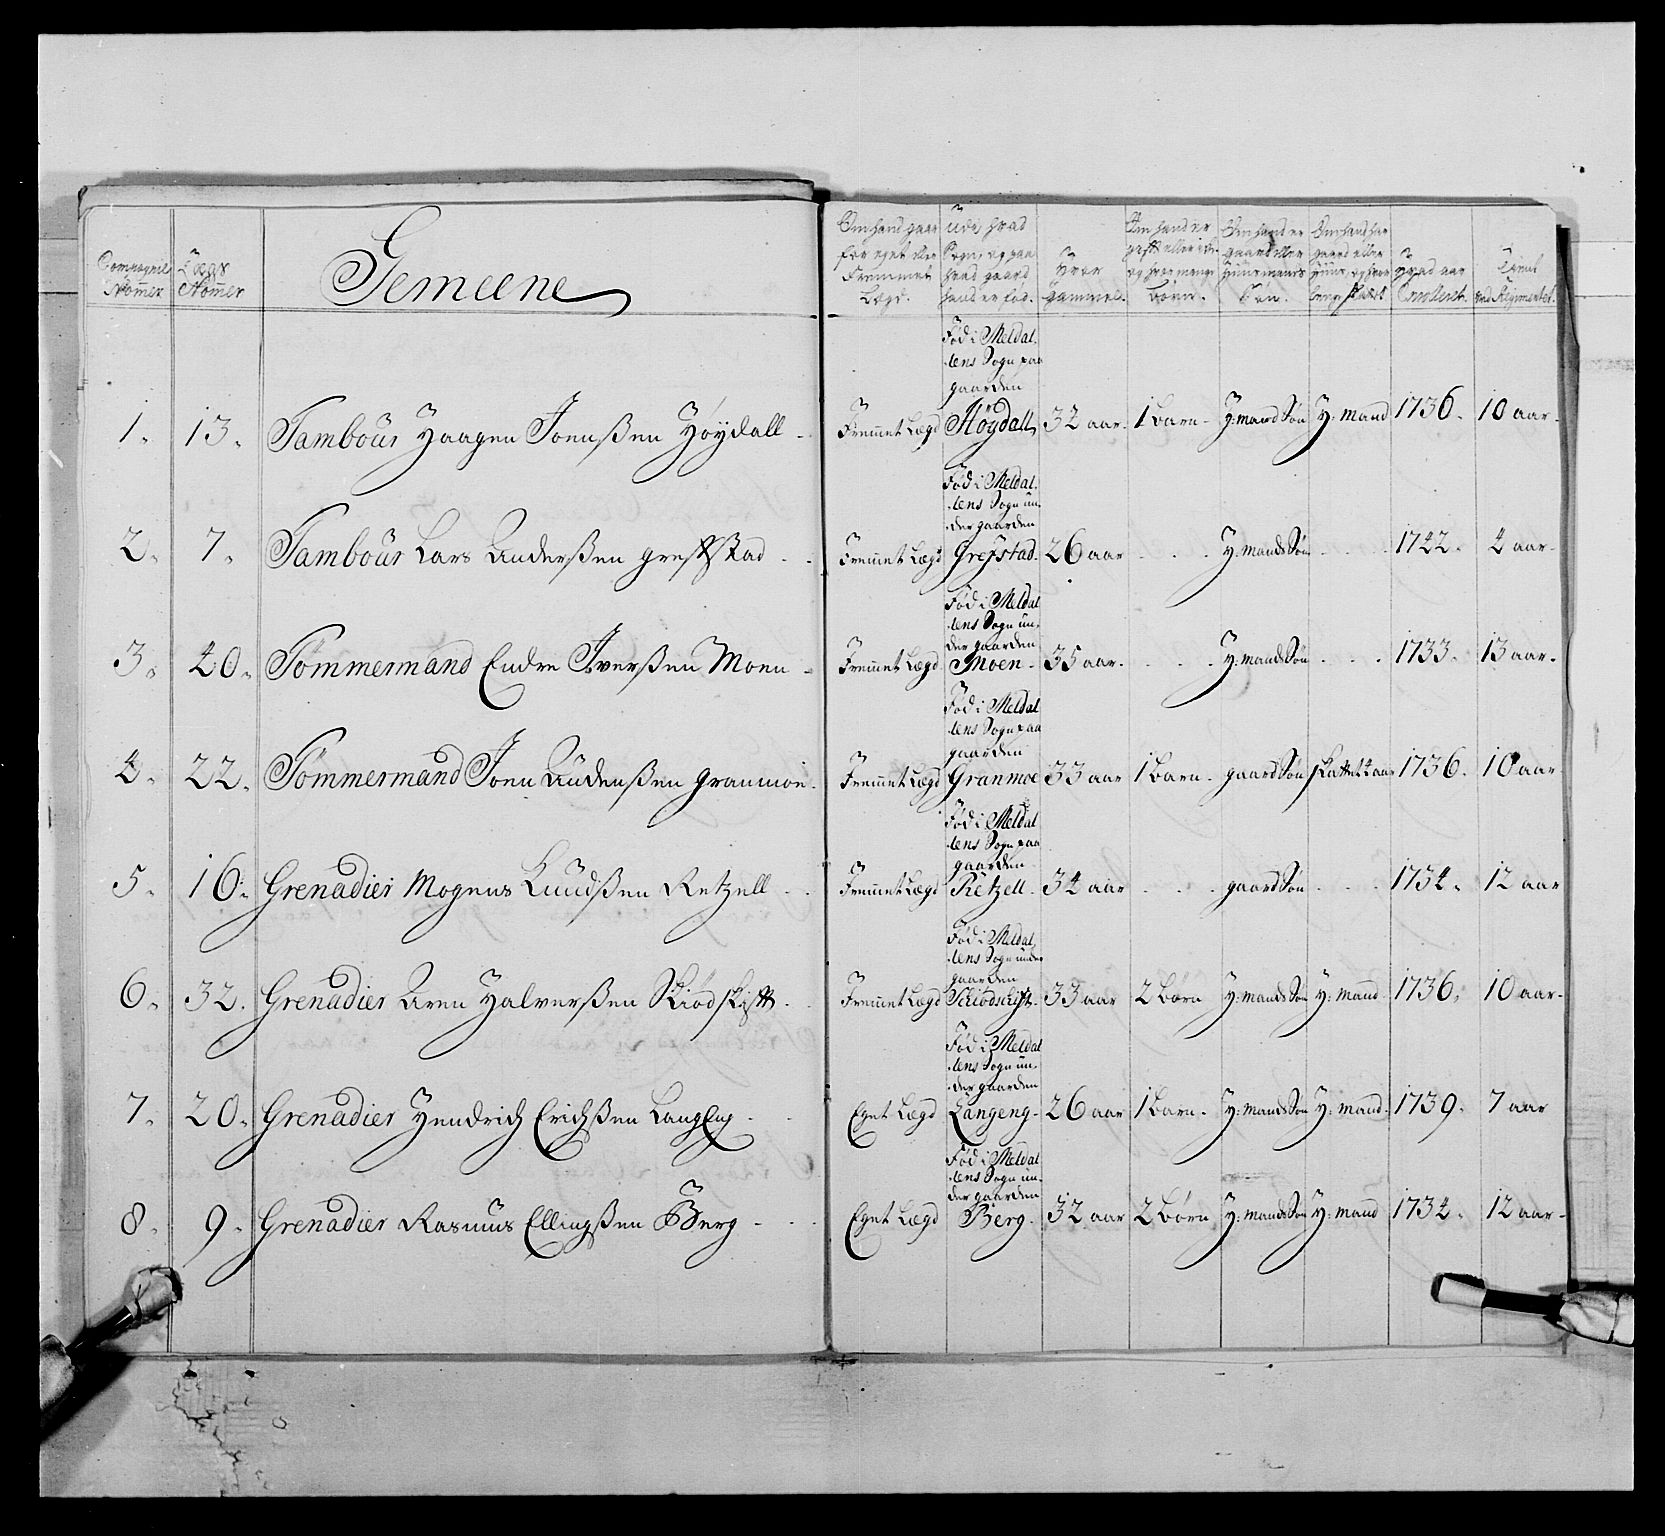 Compagnie Nommer
Lægs Nommer
Gemeene
Om hand gaar for eget eller Fremmet Lægd.
Udi hvad Sogn, og paa hvad gaard hand er fød.
Hvor gammel.
Om hand er gift eller icke og hvor mange Børn.
Om hand er gaard eller Huusmands Søn.
Om hand har gaard eller Huus, og hvor
Hvad aar Enrolleret.
Tient ved Regimentet.
1. 13. Tambour Haagen Joensßen Høydall - Fremmet Lægd Fød i Meldalens Sogn paa gaarden Høydall, 32 aar. 1 Barn - H: mand Søn H: mand 1736. 10 aar.
2. 7. Tambour Lars Andersßen Grefstad - Fremmet Lægd Fød i Meldalens Sogn under gaarden Grefstad. 26 aar - H: mands Søn - 1742. 4 aar.
3. 40. Tømmermand Endre Iversßen Moen - Fremmet Lægd Fød i Meldalens Sogn under gaarden Moen - 35 aar. - H: mands Søn - 1733. 13 aar.
4. 22. Tømmermand Joen Audensßen Granmoe. Fremmet Lægd Fød i Meldalens Sogn paa gaarden Granmoe 33 aar 1 Barn - gaard Søn skattet 4 aar 1736. 10 aar
5. 16. Grenadier Mogens Knudsßen Retzell - Fremmet Lægd Fød i Meldalens Sogn paa gaarden Retzell - 34 aar - gaard Søn - 1734. 12 aar
6. 32. Grenadier Aren Halversßen Skiødskift - Fremmet Lægd Fød i Meldalens Sogn under gaarden Schiødschift. 33 aar 2 Børn H: mands Søn H: mand 1736. 10 aar.
7. 20. Grenadier Hendrich Erichsßen Langeng - Eget Lægd Fød i Meldalens Sogn under gaarden Langeng - 26 aar 1 Barn. H: mands Søn H: mand. 1739. 7 aar
8. 9. Grenadier Rasmus Ellingsßen Berg - Eget Lægd Fød i Meldalens Sogn under gaarden Berg. 32 aar 2 Børn H: mands Søn H: mand 1734. 12 aar.